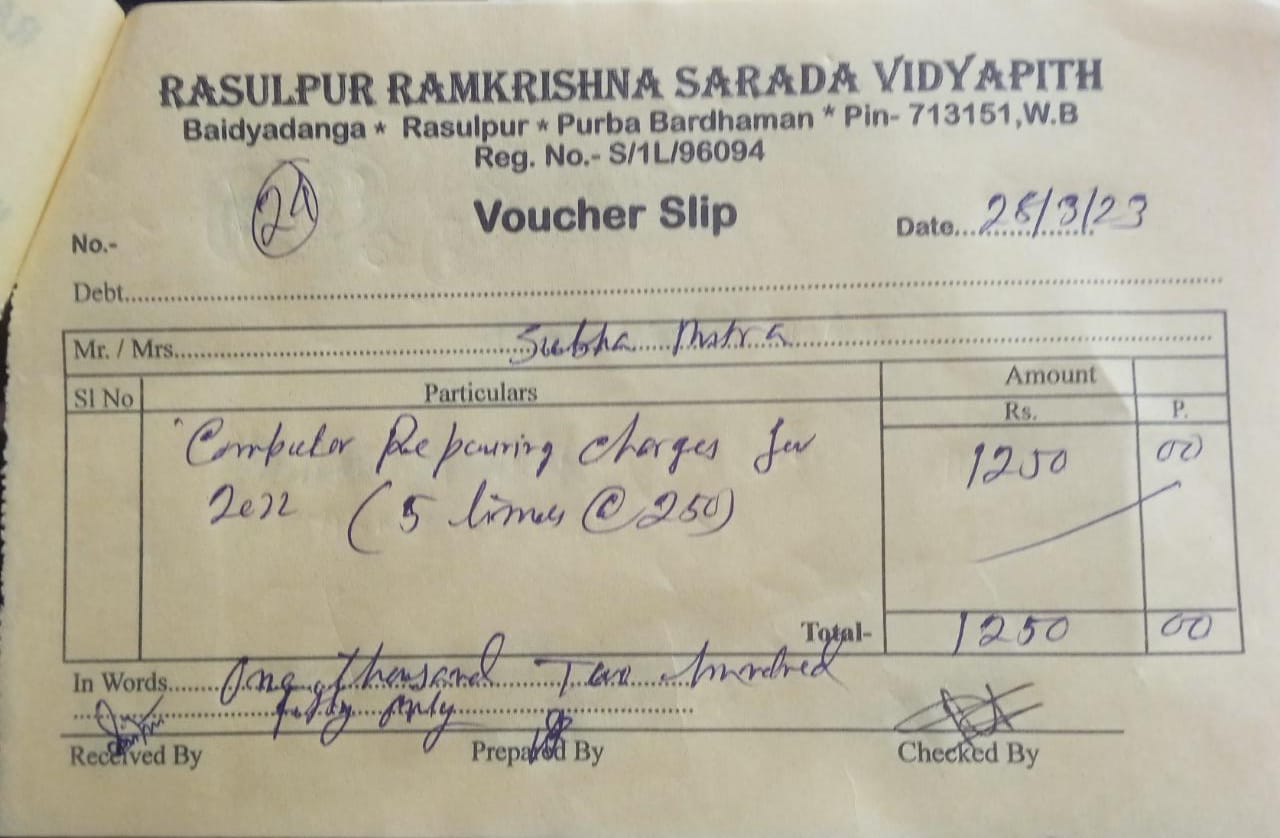 RASULPUR RAMKRISHNA SARADA VIDYAPITH
Baidyadanga * Rasulpur * Purba Bardhaman * Pin- 713151,W.B
Reg. No.- S/1L/96094
Voucher Slip
No.- 24
Date... 28/3/23
Debt
Mr. / Mrs. Subha
Sl No Particulars Amount
Rs. P.
Computer Repairing charges for 1250 00
2022 (5 times @ 250)
Total- 1250 00
In Words One thousand Two hundred
fifty only
Received By Prepared By Checked By